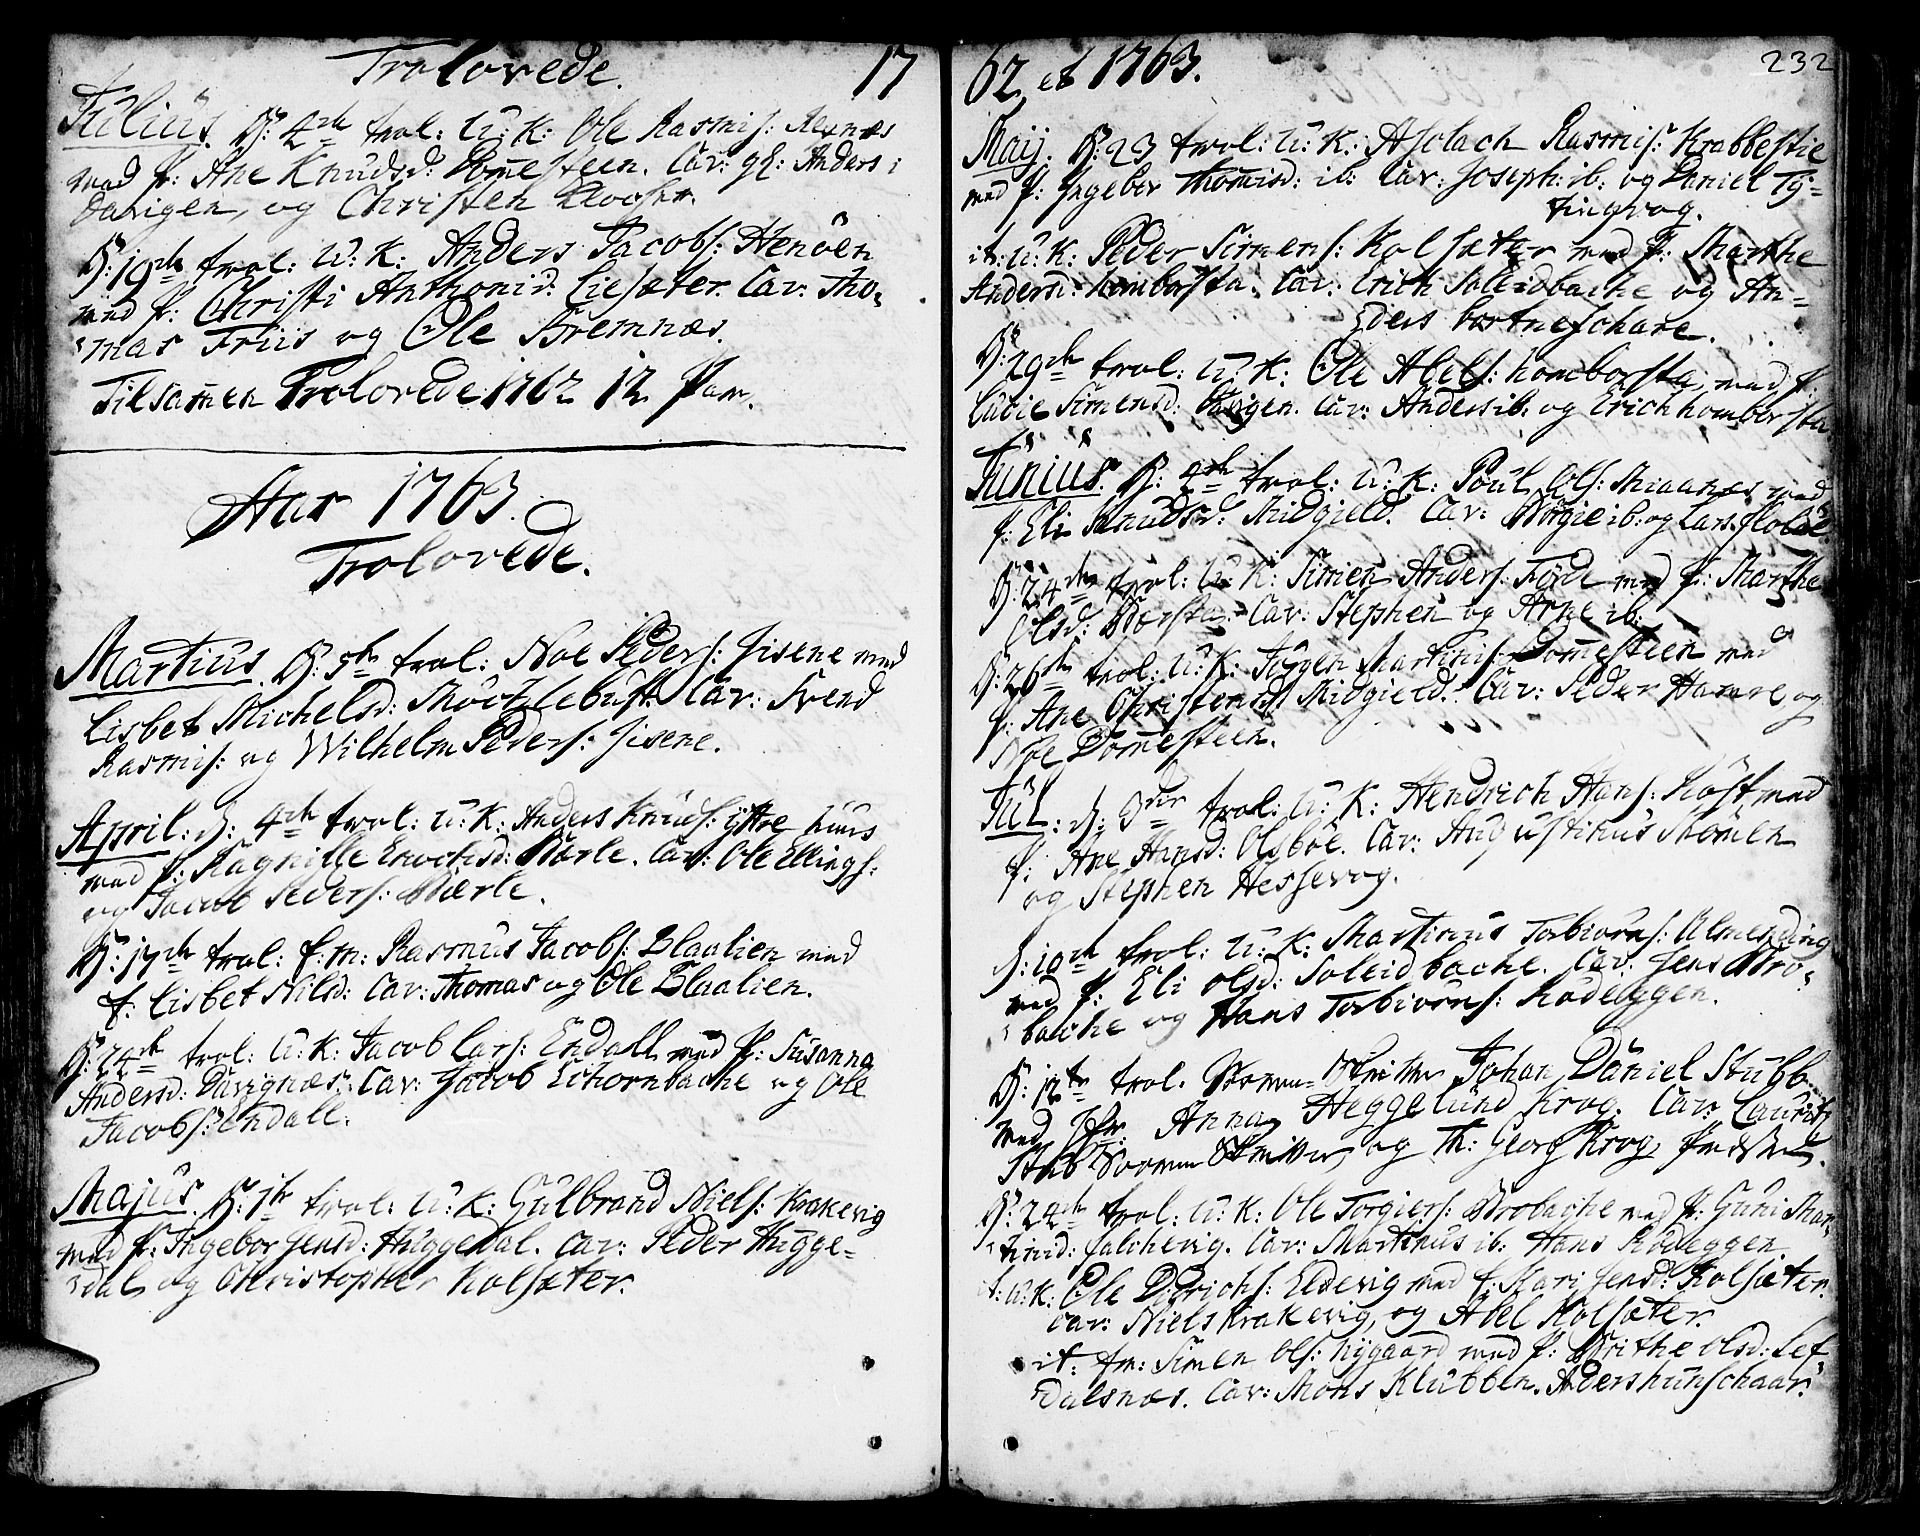 Trolovede. 17
Julius. D: 4de trol: U: K: Ole Rasmis: Rexnæs
med P: Ane Knudsd: Domesteen. Cav: Anders
Davigen, og Christen
D: 19de trol: U: K: Anders Jacobs: Henöen
med P: Christi Anthonid: Liesæter. Cav: Tho-
mas Friis og Ole Bremnæs.
Tilsam̄en Trolovede 1762 12 Par.
Aar 1763.
Trolovede.
Martius. D: 5te trol: Noe Peders: Jisene med
Lisbet Michelsd: Cav: Svend
Rasmis: og Wilhelm Peders: Jisene.
April: d: 4de trol: U: K: Anders Knuds: yttre huus
med P: Ragnille Enochsd: Bærle. Cav: Ole Ellings:
og Jacob Peders: Bærle.
D: 17de trol: f: m: Rasmus Jacobs: Blaalien med
f: Lisbet Nilsd: Cav: Thomas og Ole Blaalien.
D: 24de trol: U: K: Jacob Lars: Endall med P: Susanna
Andersd: Davignæs. Cav: Jacob Echornbache og Ole
Jacobs: Endall.
Majus. D: 1te trol: U: K: Gulbrand Niels: Krakevig
med P: Ingebor Jensd: Huggedal. Cav: Peder Hugge-
dal og Christopher Kolsæter.
62 et 1763. 232
Maij. D: 23 trol: U: K: Aslach Rasmis: Krabbestie
med P: Ingebor Thomisd: ib: Cav: Joseph: ib: og Daniel Ty-
tingvog.
it: U: K: Peder Simens: Kolsæter med P: Marthe
Andersd: homborsta. Cav: Erich Soleidbache og An-
ders bortneschare.
D: 29de trol: U: K: Ole Abels: homborsta, med P:
Lucie Simensd: Davigen. Cav: Anders ib: og Erich homborsta
Junius. D: 4de trol: U: K: Poul Ols: Maanes med
P: Eli Knudsd: Midgield. Cav: Børgie ib: og Lars Holde
D: 24de trol: U: K: Simen Anders: Förde med P: Marthe
Olsd: Børsta. Cav: Stephen og Arne ib:
D: 26de trol: U: K: Jörgen Martinis: Domesteen med
P: Ane Christensd: Midgield. Cav: Peder Hamre og
Noe Domesteen.
Jul: d: 3die trol: U: K: Hendrich Hans: Röst med
P: Ane Hansd: Olsböe. Cav: Augustinus
og Stephen Hessevog.
d: 10de trol: U: K: Martinus Torbiörns: Almending
med P: Eli Olsd: Soleidbache. Cav: Jens Bro-
bache og Hans Torbiörns: Rödeggen.
D: 12te trol. Soren-Skriver Johan Daniel Stubb
med Jfr: Anna Heggelund Krog. Cav: Laurits
Stub Soren Skriver, og Th: Georg Krog, Præsten.
D: 24de trol: U: K: Ole Torgiers: Brobache med P: Guni Mar-
tinid: Salthevig. Cav: Martinus ib: Hans Rödeggen.
it: U: K: Ole Didrichs: Eldevig med P: Mari Jensd: Kolsæter.
Cav: Niels Krakevig, og Abel Kolsæter.
it: fm: Simen Ols: Nygaard med P: Brithe Olsd: Lef-
dalsnæs. Cav: Mons Klubben. Anders hunschaar.